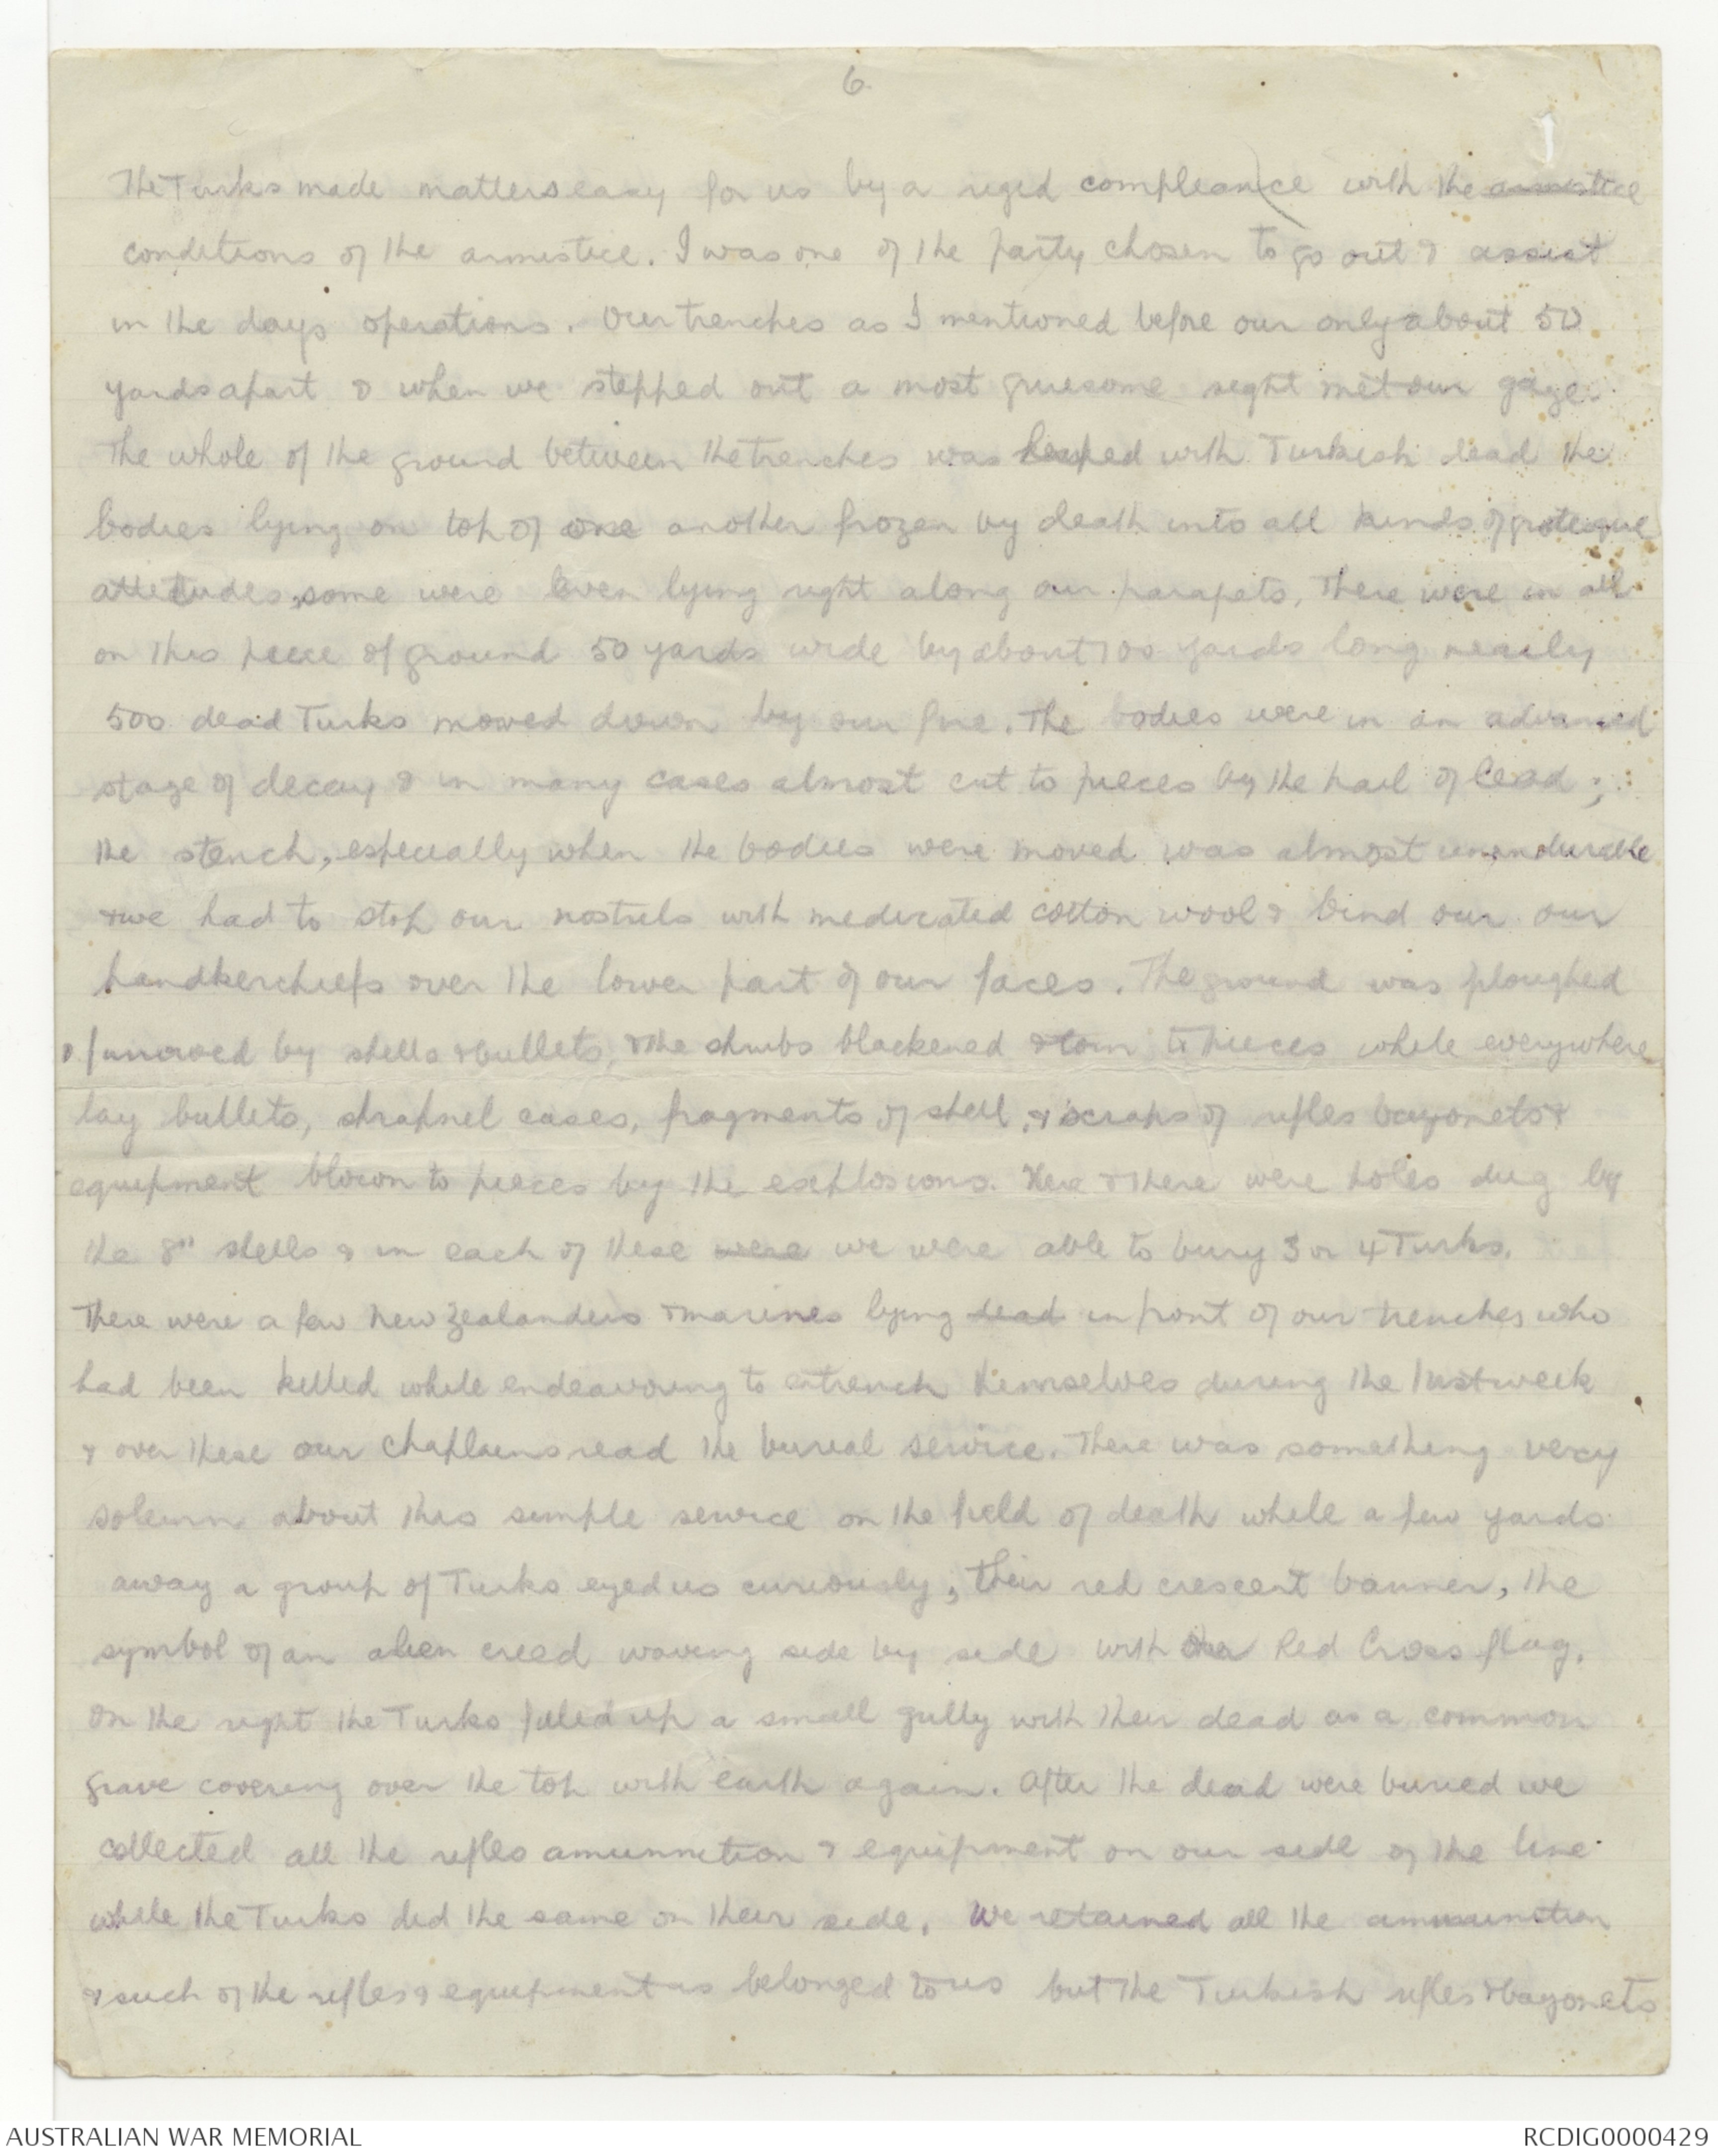 6.
The Turks made matters easy for us by a riged compleance with the armistice
conditions of the armistice. I was one of the party chosen to go out & assist
in the days operations. Our trenches as I mentioned before our only about 50
yards apart & when we stepped out a most gruesome sight met our gaze.
The whole of the ground between the trenches was heaped with Turkish dead the
bodies lying on top of one another frozen by death into all kinds of grotesque
attitudes, some were even lying right along our parapets. There were in all
on this peece of ground 50 yards wide by about 100 yards long nearly
500 dead Turks mowed down by our fire. The bodies were in an advanced
stage of decay & in many cases almost cut to pieces by the hail of lead;
the stench, especially when the bodies were moved was almost unendurable
& we had to stop our nostrils with medicated cotton wool & bind our our
handkerchiefs over the lower part of our faces. The ground was ploughed
& furrowed by shells & bullets, & the shrubs blackened & torn to pieces while everywhere
lay bullets, shrapnel cases, fragments of shell, & scraps of rifles bayonets &
equipment blown to pieces by the explosions. Here & there were holes dug by
the 8" shells & in each of these were we were able to bury 3 or 4 Turks.
There were a few New Zealanders & marines lying dead in front of our trenches who
had been killed while endeavouring to entrench themselves during the first week
& over these our chaplains read the burial service. There was something very
solemn about this simple service on the field of death while a few yards
away a group of Turks eyed us curiously, their red crescent banner, the
symbol of an alien creed waving side by side with our Red Cross flag.
On the right the Turks filled up a small gully with their dead as a common
grave covering over the top with earth again. After the dead were buried we
collected all the rifles amunnition & equipment on our side of the line
while the Turks did the same on their side. We retained all the ammunition
& such of the rifles & equipment as belonged to us but the Turkish rifles & bayonets
AUSTRALIAN WAR MEMORIAL
RCDIG0000429